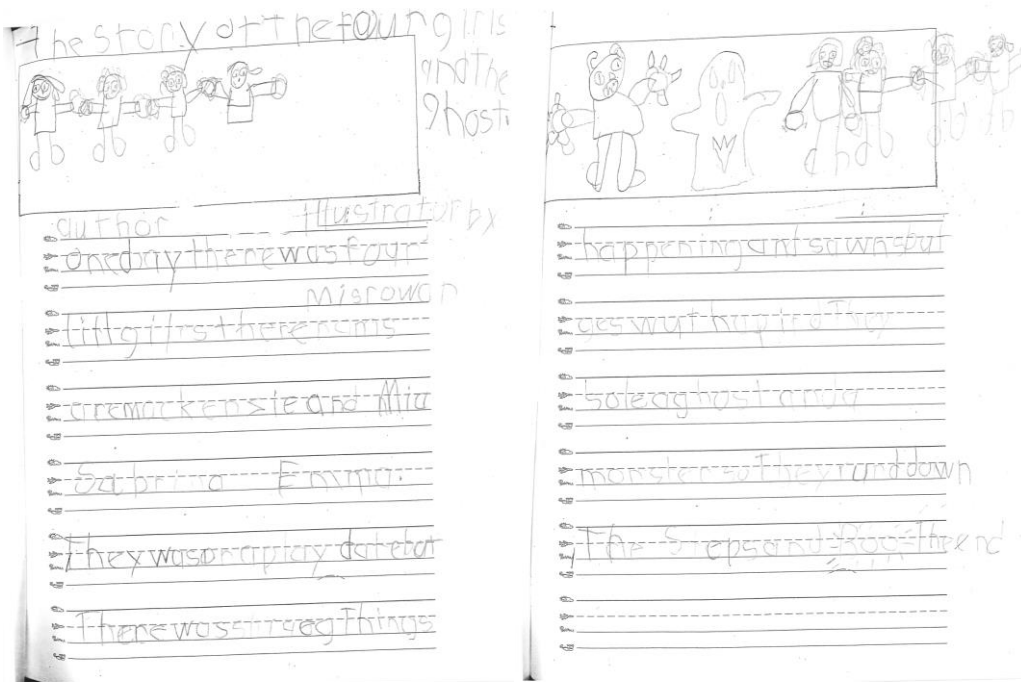 The story of The four girls
and the
ghost.
author illustratur by
one day there was four
Misrowan
littl girls there nams
are mackenzie and Mia
Sabrina Emma.
They was on a play date but
There was straeg Things
happening
ges wut hapind They
a ghost and a
monster so They rand down
The steps and The end